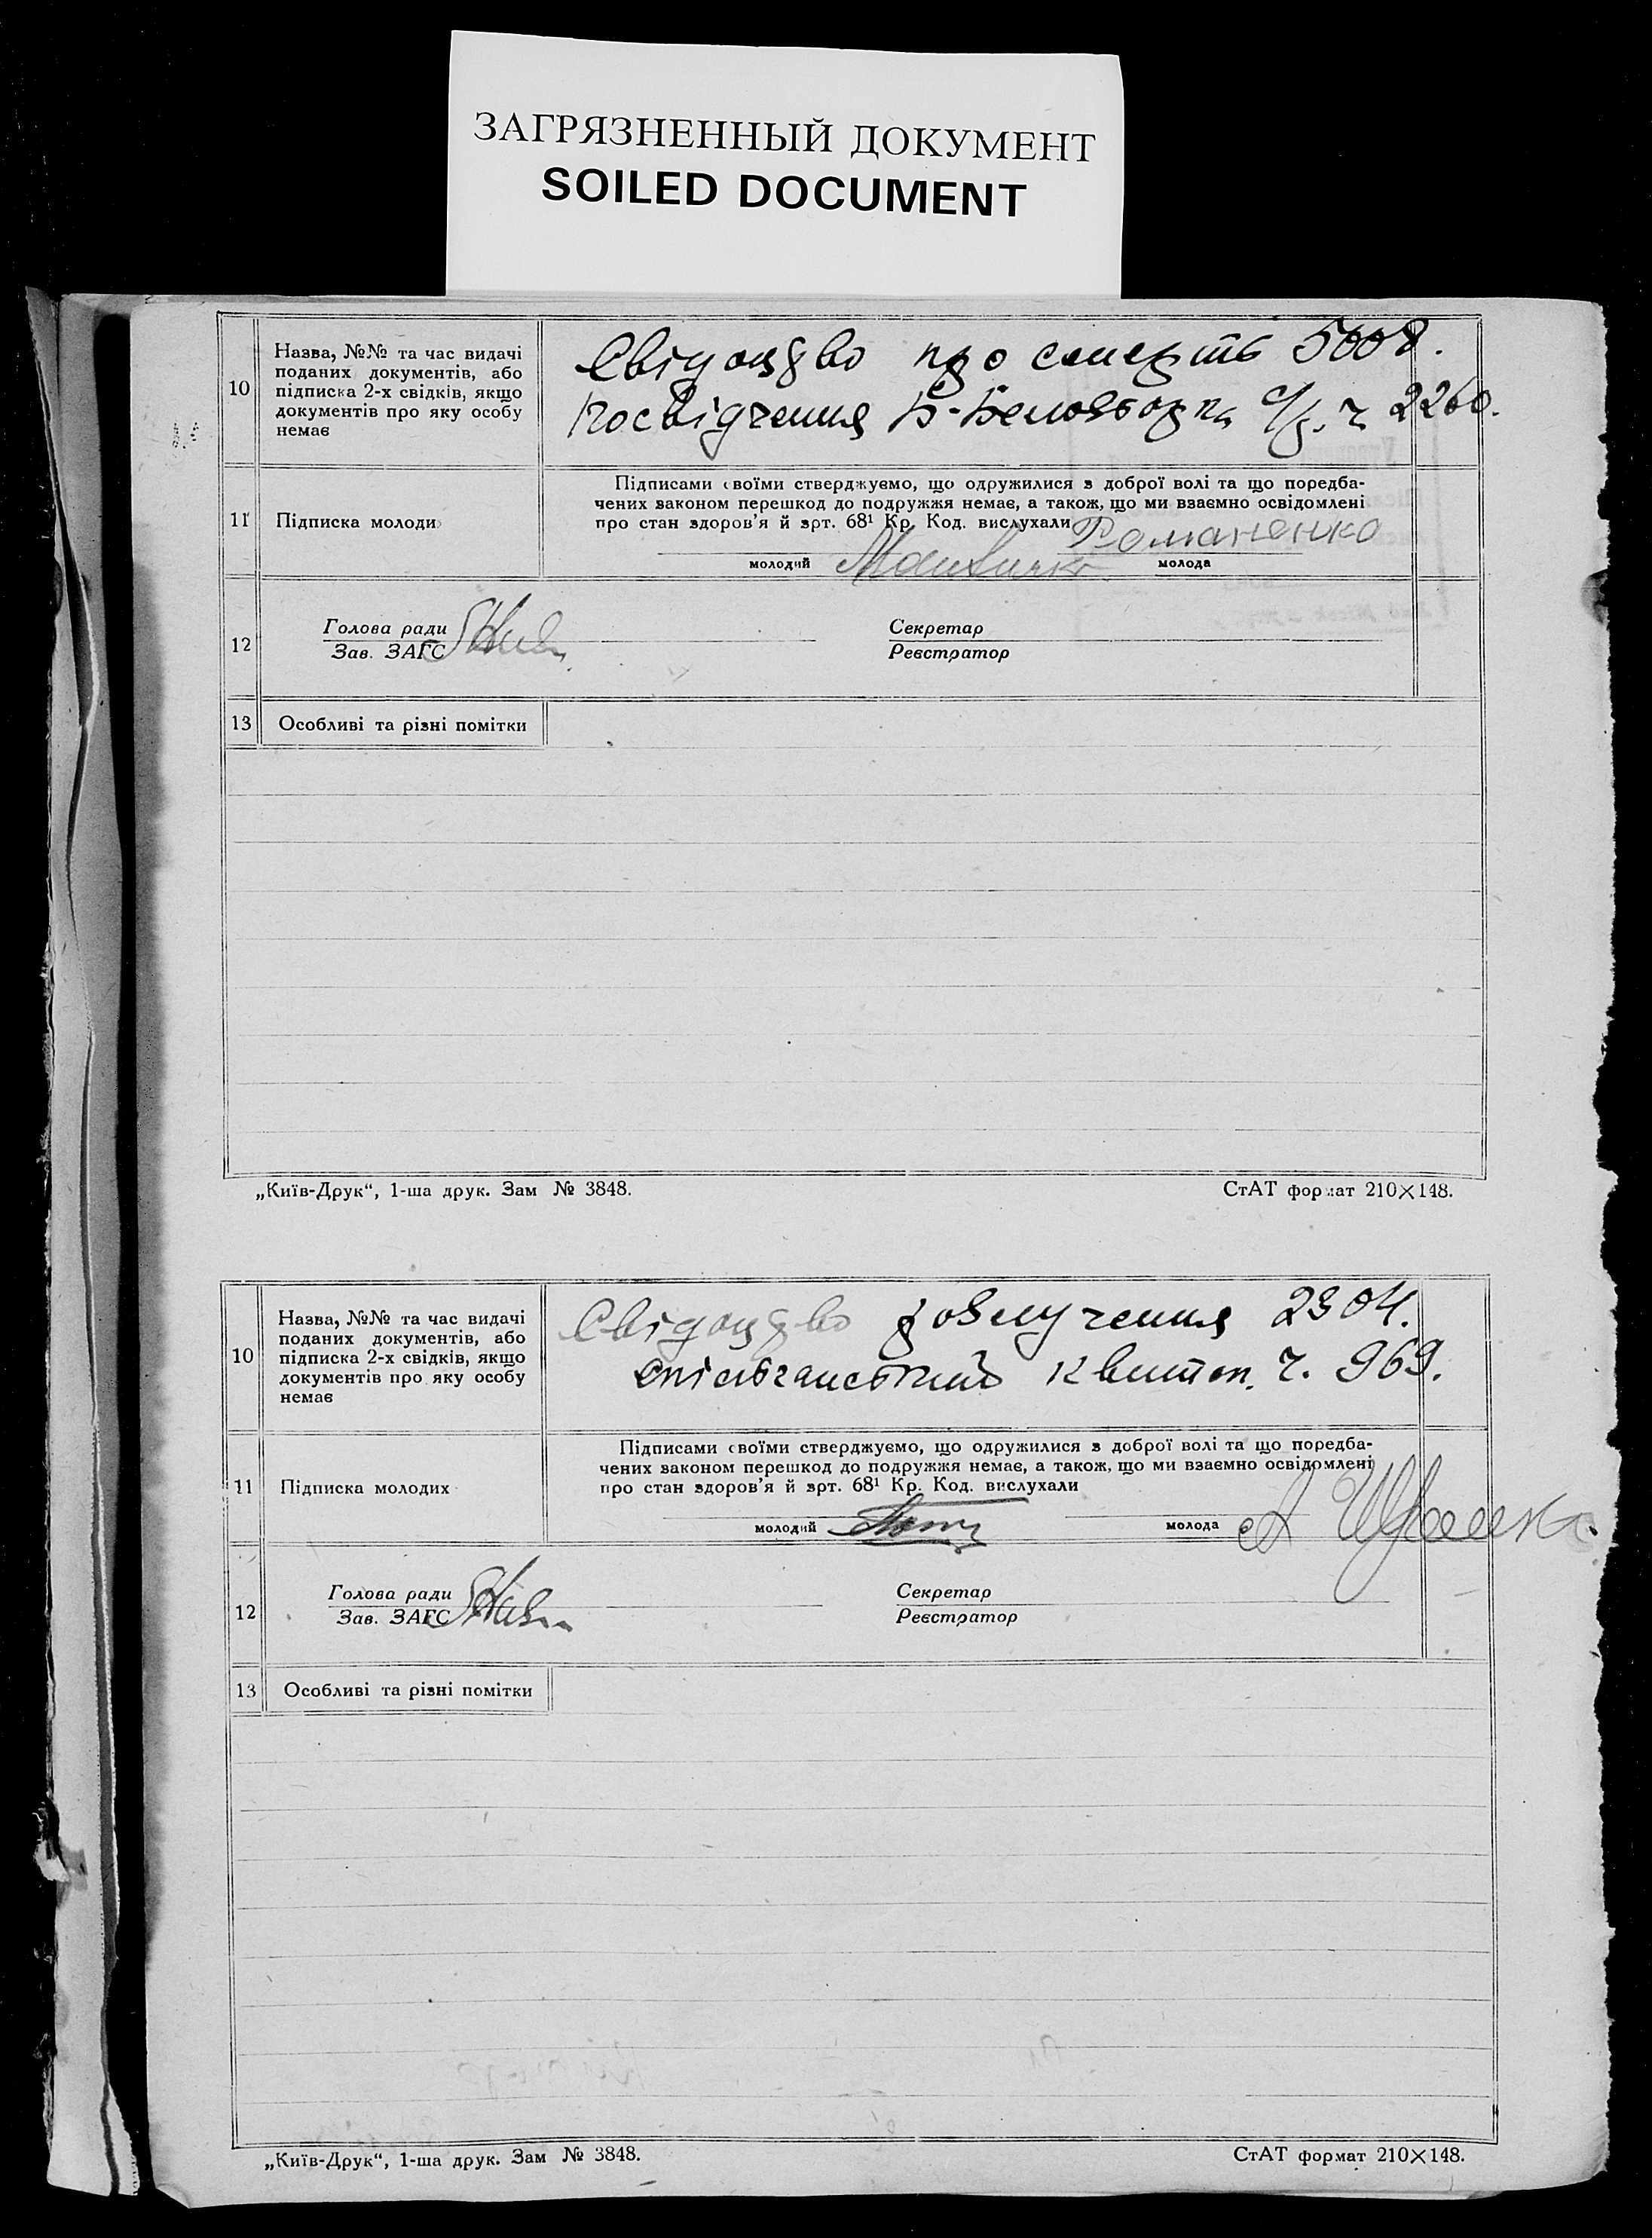 ЗАГРЯЗНЕННЫЙ ДОКУМЕНТ
SOILED DOCUMENT
10
Назва, №№ та час видачі
поданих документів, або
підписка 2-х свідків, якщо
документів про яку особу
немає
Свідоцтво про смерть 5008.
Посвідчення с/р. ч. 2260.
11
Підписка молоди
Підписами своїми стверджуємо, що одружилися з доброї волі та що поредба-
чених законом перешкод до подружжя немає, а також, що ми взаємно освідомлені
про стан здоров'я й арт. 68¹ Кр. Код. вислухали
Романенко
молодий
молода
12
Голова ради
Зав. ЗАГС
Секретар
Реєстратор
13
Особливі та різні помітки
„Київ-Друк“, 1-ша друк. Зам № 3848.
СтАТ формат 210×148.
10
Назва, №№ та час видачі
поданих документів, або
підписка 2-х свідків, якщо
документів про яку особу
немає
Свідоцтво розлучення 2304.
спілчанський квиток. ч. 969.
11
Підписка молодих
Підписами своїми стверджуємо, що одружилися з доброї волі та що поредба-
чених законом перешкод до подружжя немає, а також, що ми взаємно освідомлені
про стан здоров'я й арт. 68¹ Кр. Код. вислухали
молодий
молода
12
Голова ради
Зав. ЗАГС
Секретар
Реєстратор
13
Особливі та різні помітки
„Київ-Друк“, 1-ша друк. Зам № 3848.
СтАТ формат 210×148.